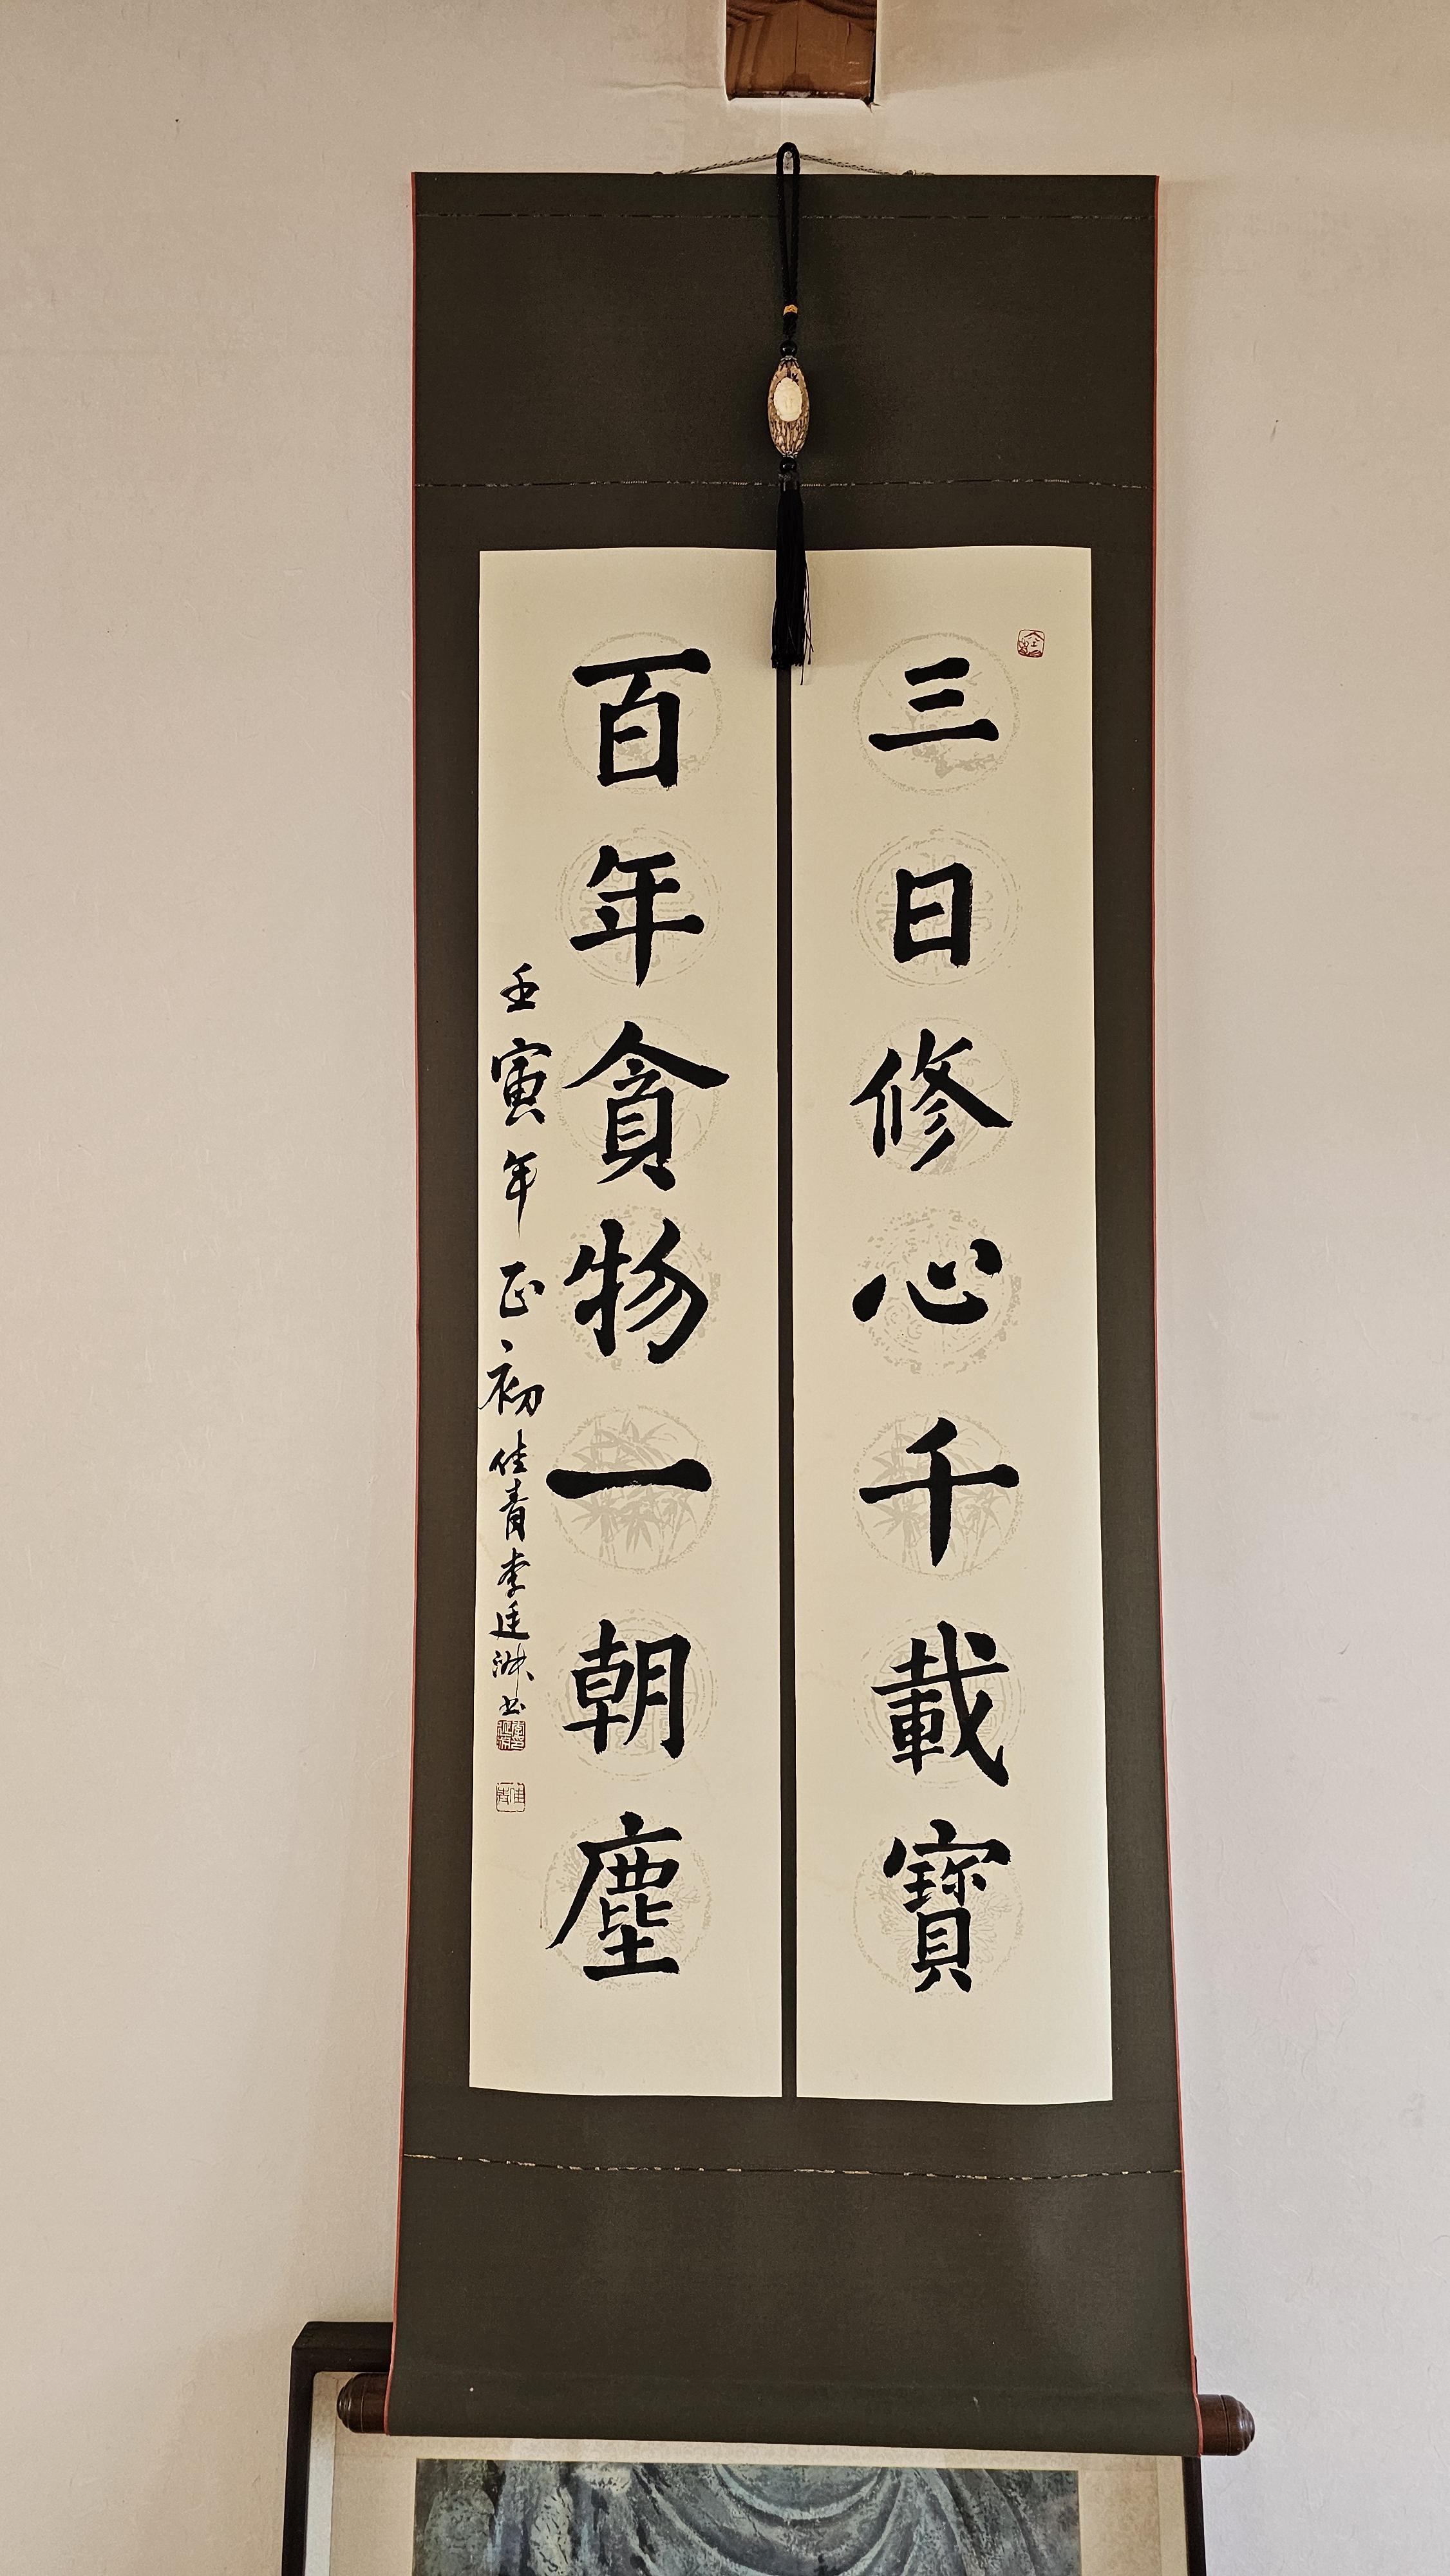 三日修心千載寶
百年貪物一朝塵
壬寅年正初佳青李廷洙书